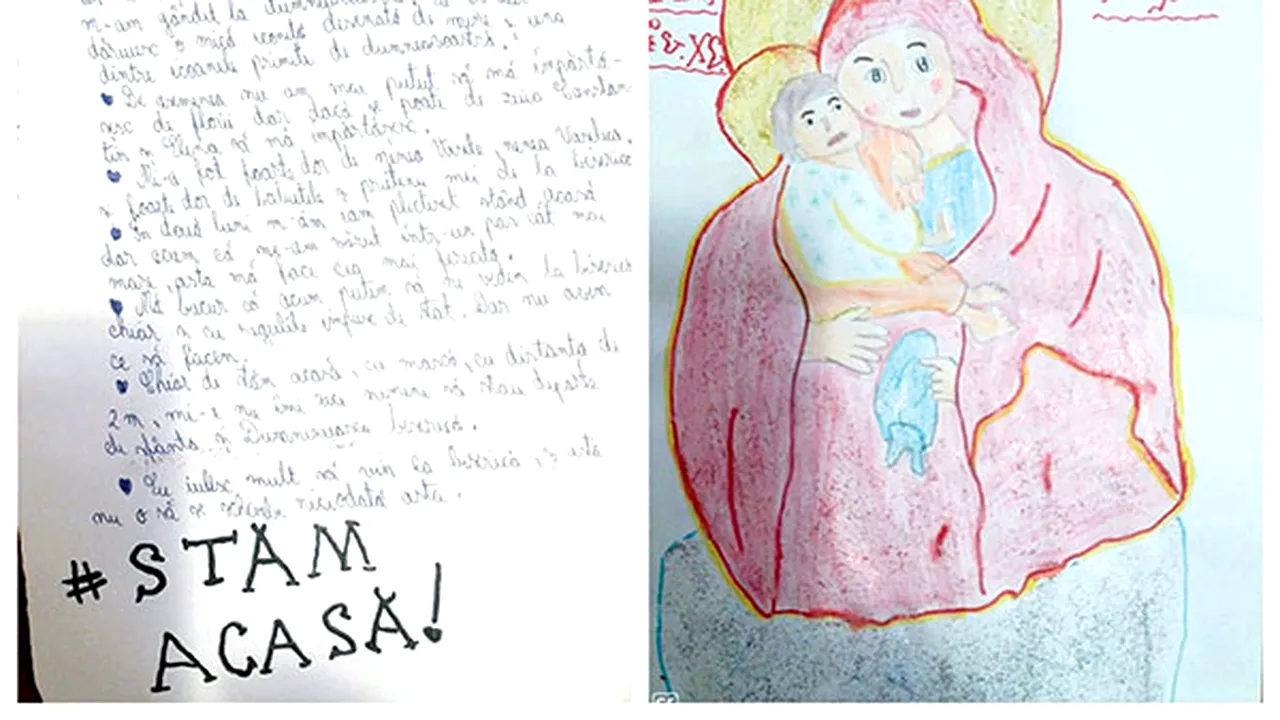 m-am gândit la
dăruiesc o mică iconiță desenată de mine și una
dintre icoanele primite de dumneavoastră.
De asemenea nu am mai putut să mă împărtă-
șesc de florii dar dacă se poate de ziua Constan-
tin și Elena să mă împărtășesc.
Mi-a fost foarte dor de nenea Vasile, nenea Vasilică,
și foarte dor de băieții și prietenii mei de la biserică
În două luni m-am cam plictisit stând acasă
dar acum că ne-am văzut într-un parc cât mai
mare, asta mă face cea mai fericită.
Mă bucur că acum putem să ne vedem la biserică
chiar și cu regulile impuse de stat. Dar nu avem
ce să facem.
Chiar de stăm acasă, cu mască, cu distanță de
2m, mie nu îmi este să stau departe
de sfânta și Dumnezeiasca biserică.
Eu iubesc mult să vin la biserică, și asta
nu o să se schimbe niciodată asta.
#STĂM
ACASĂ!